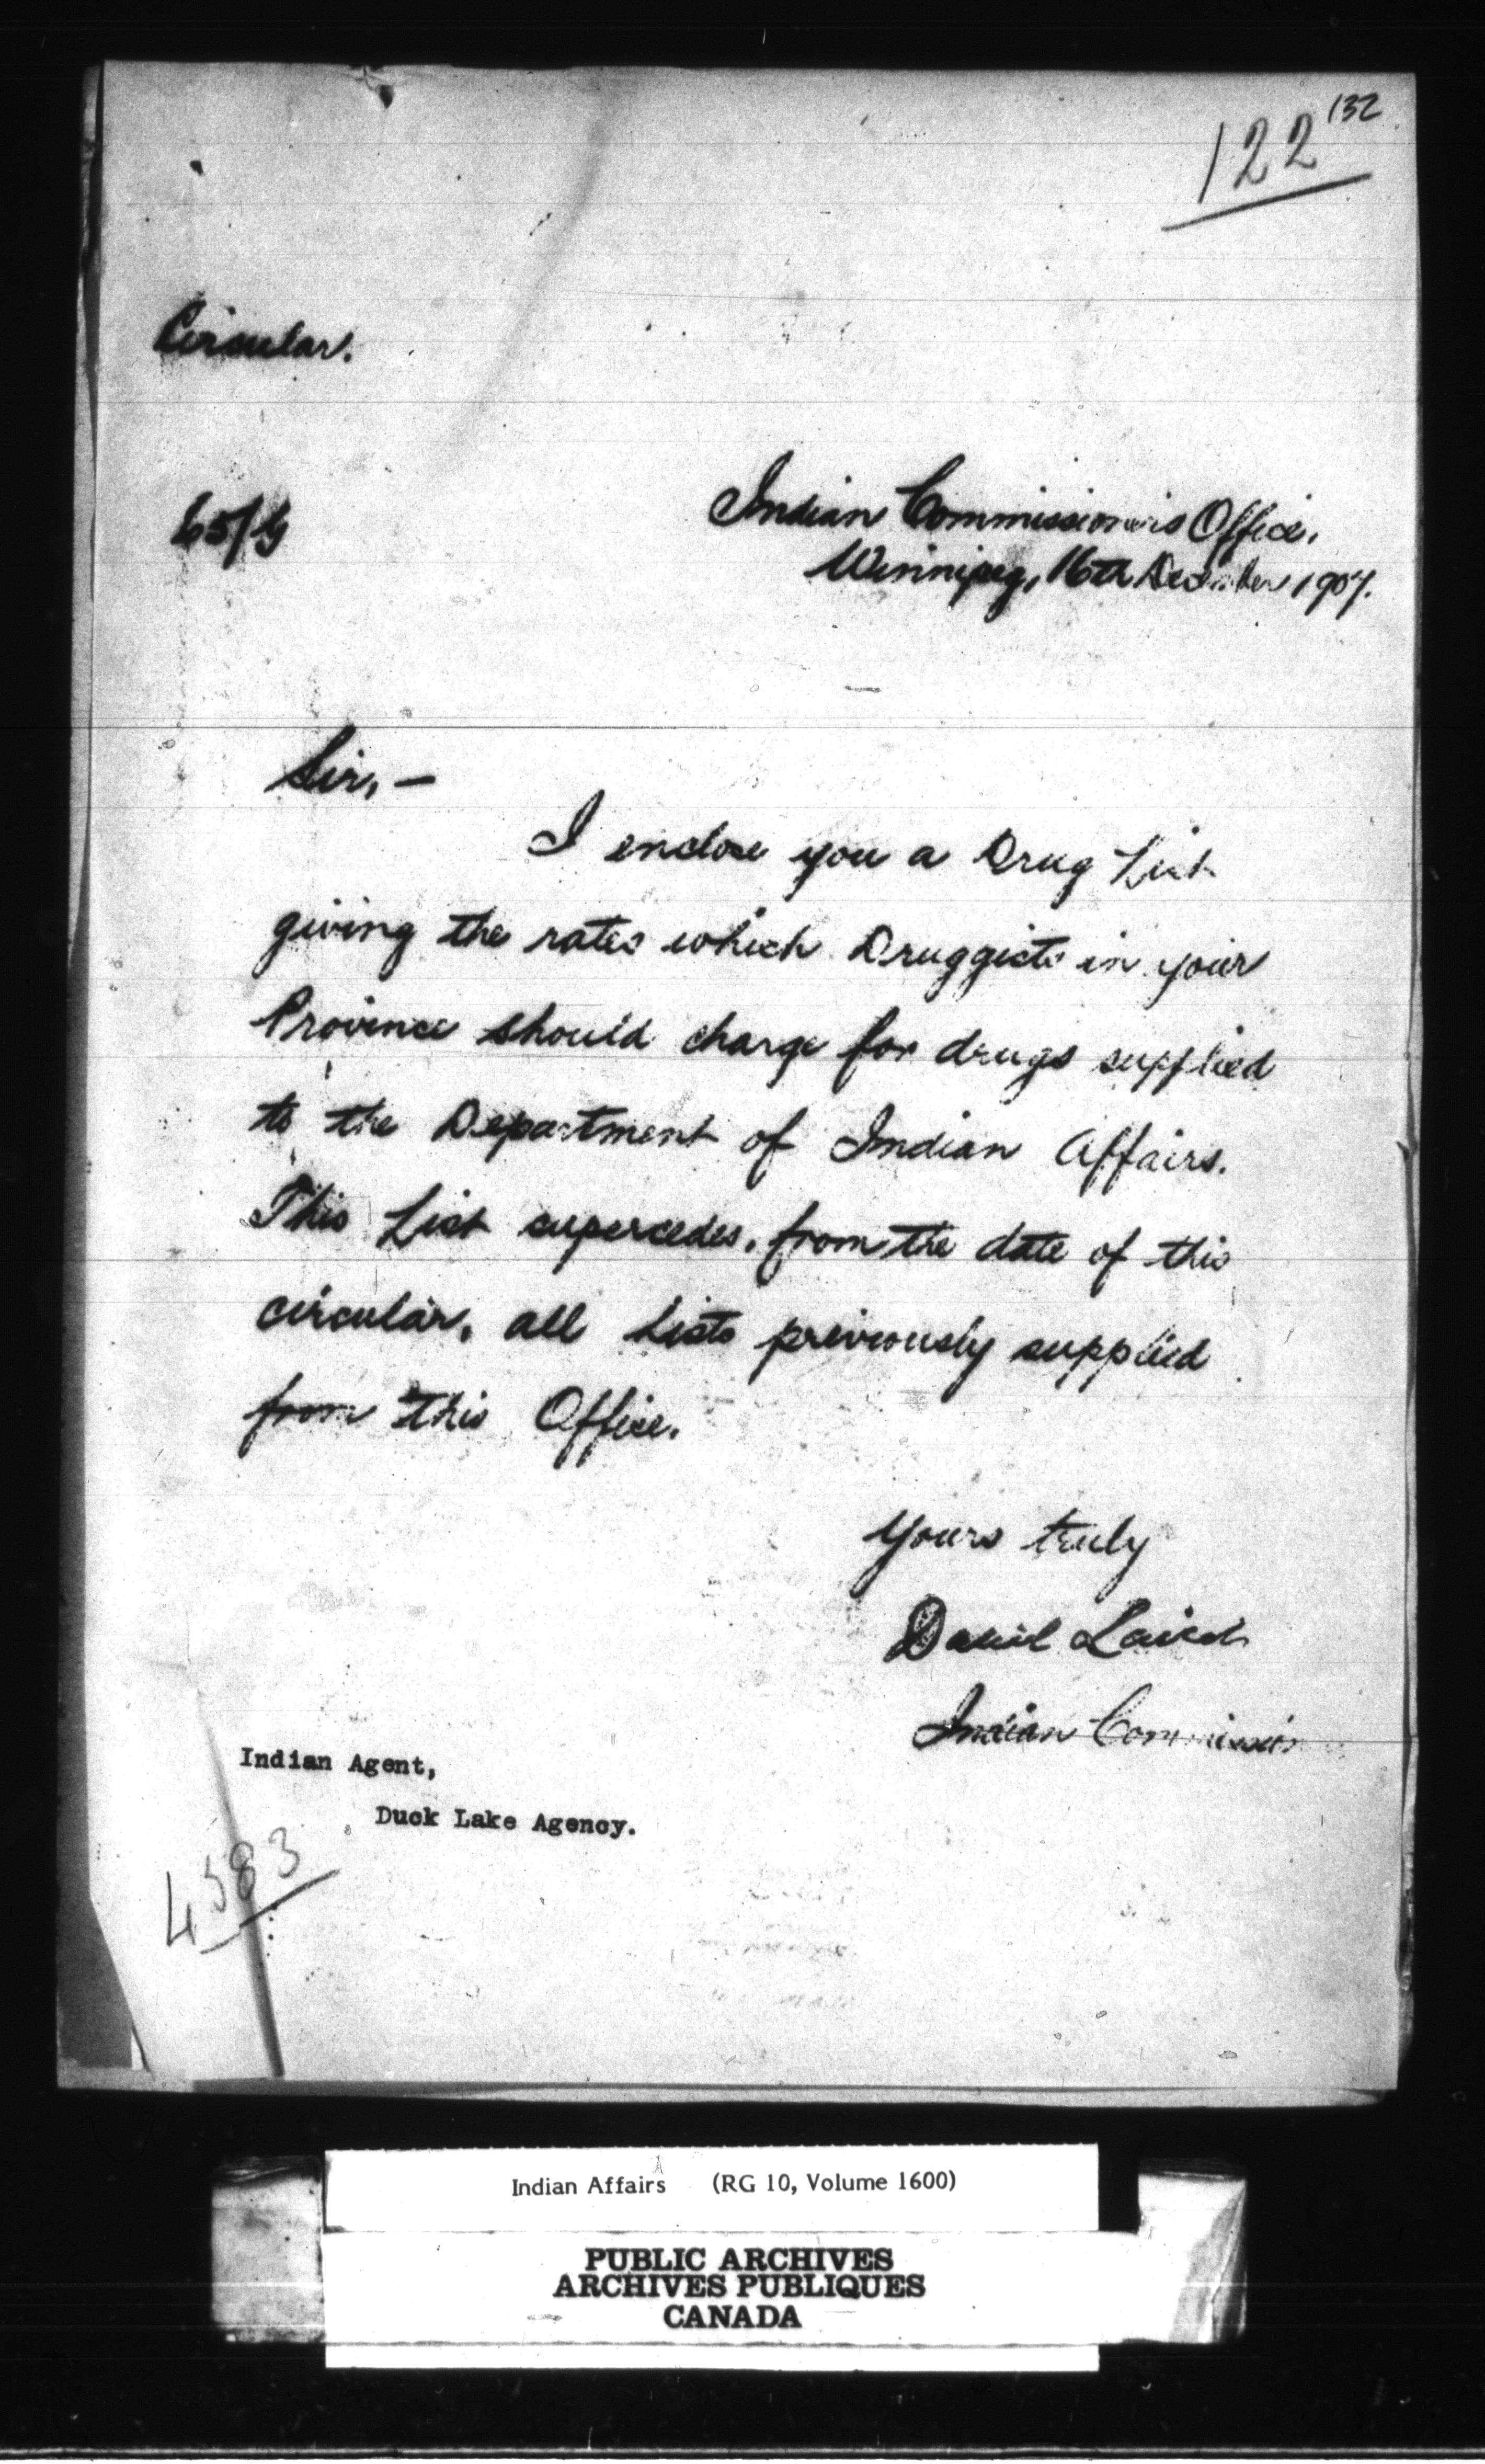 132
122
Circular.
65/9
Indian Commissioner's Office,
Winnipeg, 16th December 1907.
Sir, —
I enclose you a Drug List
giving the rates which Druggists in your
Province should charge for drugs supplied
to the Department of Indian Affairs.
This List supercedes, from the date of this
circular, all Lists previously supplied
from this Office.
Yours truly
David Laird
Indian Commissioner
Indian Agent,
Duck Lake Agency.
4583
Indian Affairs (RG 10, Volume 1600)
PUBLIC ARCHIVES
ARCHIVES PUBLIQUES
CANADA